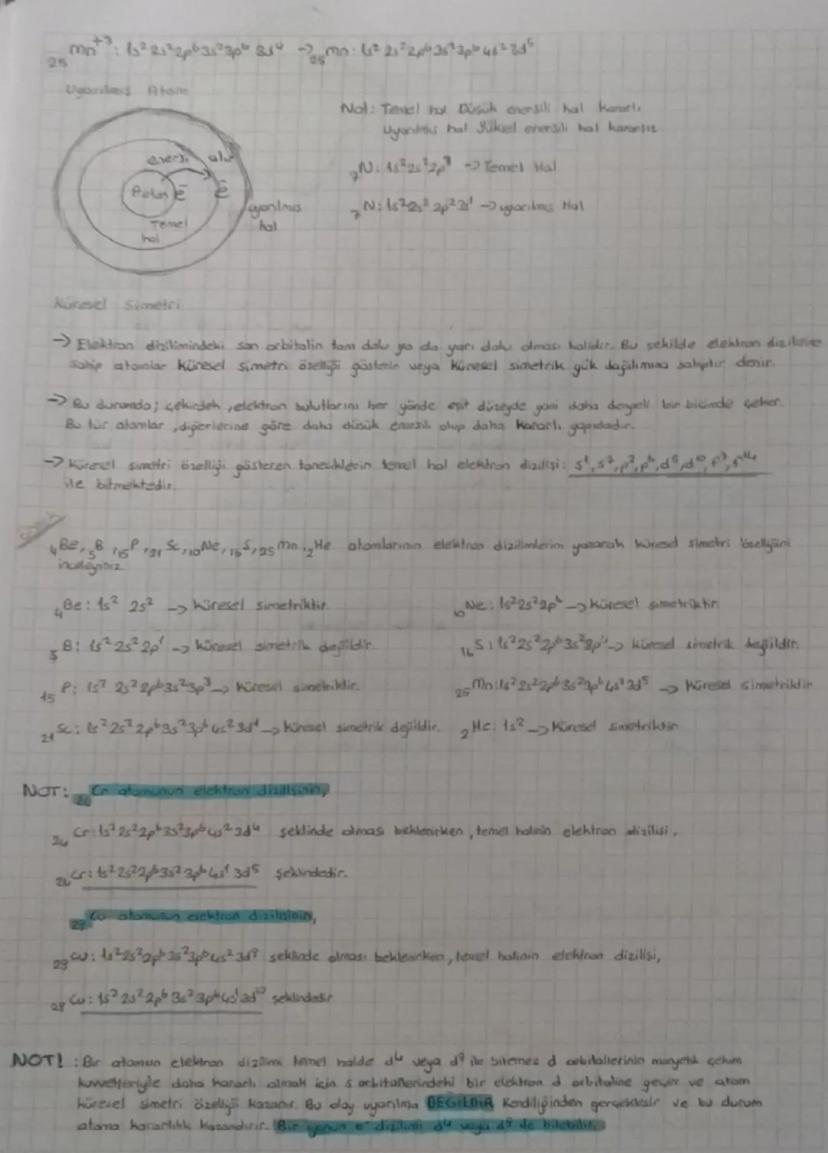 ₂₅Mn⁺³: 1s² 2s² 2p⁶ 3s² 3p⁶ 3d⁴ → ₂₅Mn: 1s² 2s² 2p⁶ 3s² 3p⁶ 4s² 3d⁵
Uyarılmış Atom
Not: Temel hal Düşük enerjili hal kararlı
Uyarılmış hal Yüksek enerjili hal kararsız
enerji alır
e⁻ e⁻
Temel hal
uyarılmış hal
₇N: 1s² 2s² 2p³ → Temel Hal
₇N: 1s² 2s² 2p² 3s¹ → uyarılmış Hal
Küresel Simetri
→ Elektron dizilimindeki son orbitalin tam dolu ya da yarı dolu olması halidir. Bu şekilde elektron dizilimine
sahip atomlar küresel simetri özelliği gösterir veya küresel simetrik yük dağılımına sahiptir denir.
→ Bu durumda; çekirdek, elektron bulutlarını her yönde eşit düzeyde yani daha dengeli bir biçimde çeker.
Bu tür atomlar, diğerlerine göre daha düşük enerjili olup daha kararlı yapıdadır.
→ Küresel simetri özelliği gösteren taneciklerin temel hal elektron dizilişi: s¹, s², p³, p⁶, d⁵, d¹⁰, f⁷, f¹⁴
ile bitmektedir.
₄Be, ₅B, ₁₅P, ₂₁Sc, ₁₀Ne, ₁₆S, ₂₅Mn, ₂He atomlarının elektron dizilimlerini yazarak küresel simetri özelliğini
inceleyiniz
₄Be: 1s² 2s² → küresel simetriktir.
₁₀Ne: 1s² 2s² 2p⁶ → küresel simetriktir
₅B: 1s² 2s² 2p¹ → küresel simetrik değildir.
₁₆S: 1s² 2s² 2p⁶ 3s² 3p⁴ → küresel simetrik değildir.
₁₅P: 1s² 2s² 2p⁶ 3s² 3p³ → küresel simetriktir.
₂₅Mn: 1s² 2s² 2p⁶ 3s² 3p⁶ 4s² 3d⁵ → Küresel simetriktir
₂₁Sc: 1s² 2s² 2p⁶ 3s² 3p⁶ 4s² 3d¹ → küresel simetrik değildir.
₂He: 1s² → Küresel simetriktir
NOT: Cr atomunun elektron dizilişinin,
₂₄Cr: 1s² 2s² 2p⁶ 3s² 3p⁶ 4s² 3d⁴ şeklinde olması beklenirken, temel halinin elektron dizilişi,
₂₄Cr: 1s² 2s² 2p⁶ 3s² 3p⁶ 4s¹ 3d⁵ şeklindedir.
₂₉Cu atomunun elektron dizilişinin,
₂₉Cu: 1s² 2s² 2p⁶ 3s² 3p⁶ 4s² 3d⁹ şeklinde olması beklenirken, temel halinin elektron dizilişi,
₂₉Cu: 1s² 2s² 2p⁶ 3s² 3p⁶ 4s¹ 3d¹⁰ şeklindedir
NOT! : Bir atomun elektron dizilimi temel halde d⁴ veya d⁹ ile bitemez d orbitallerinin manyetik çekim
kuvvetleriyle daha kararlı olmak için s orbitallerindeki bir elektron d orbitaline geçer ve atom
küresel simetri özelliği kazanır. Bu olay uyarılma DEĞİLDİR kendiliğinden gerçekleşir ve bu durum
atoma kararlılık kazandırır. Bir iyonun e⁻ dizilimi d⁴ veya d⁹ ile bitebilir.